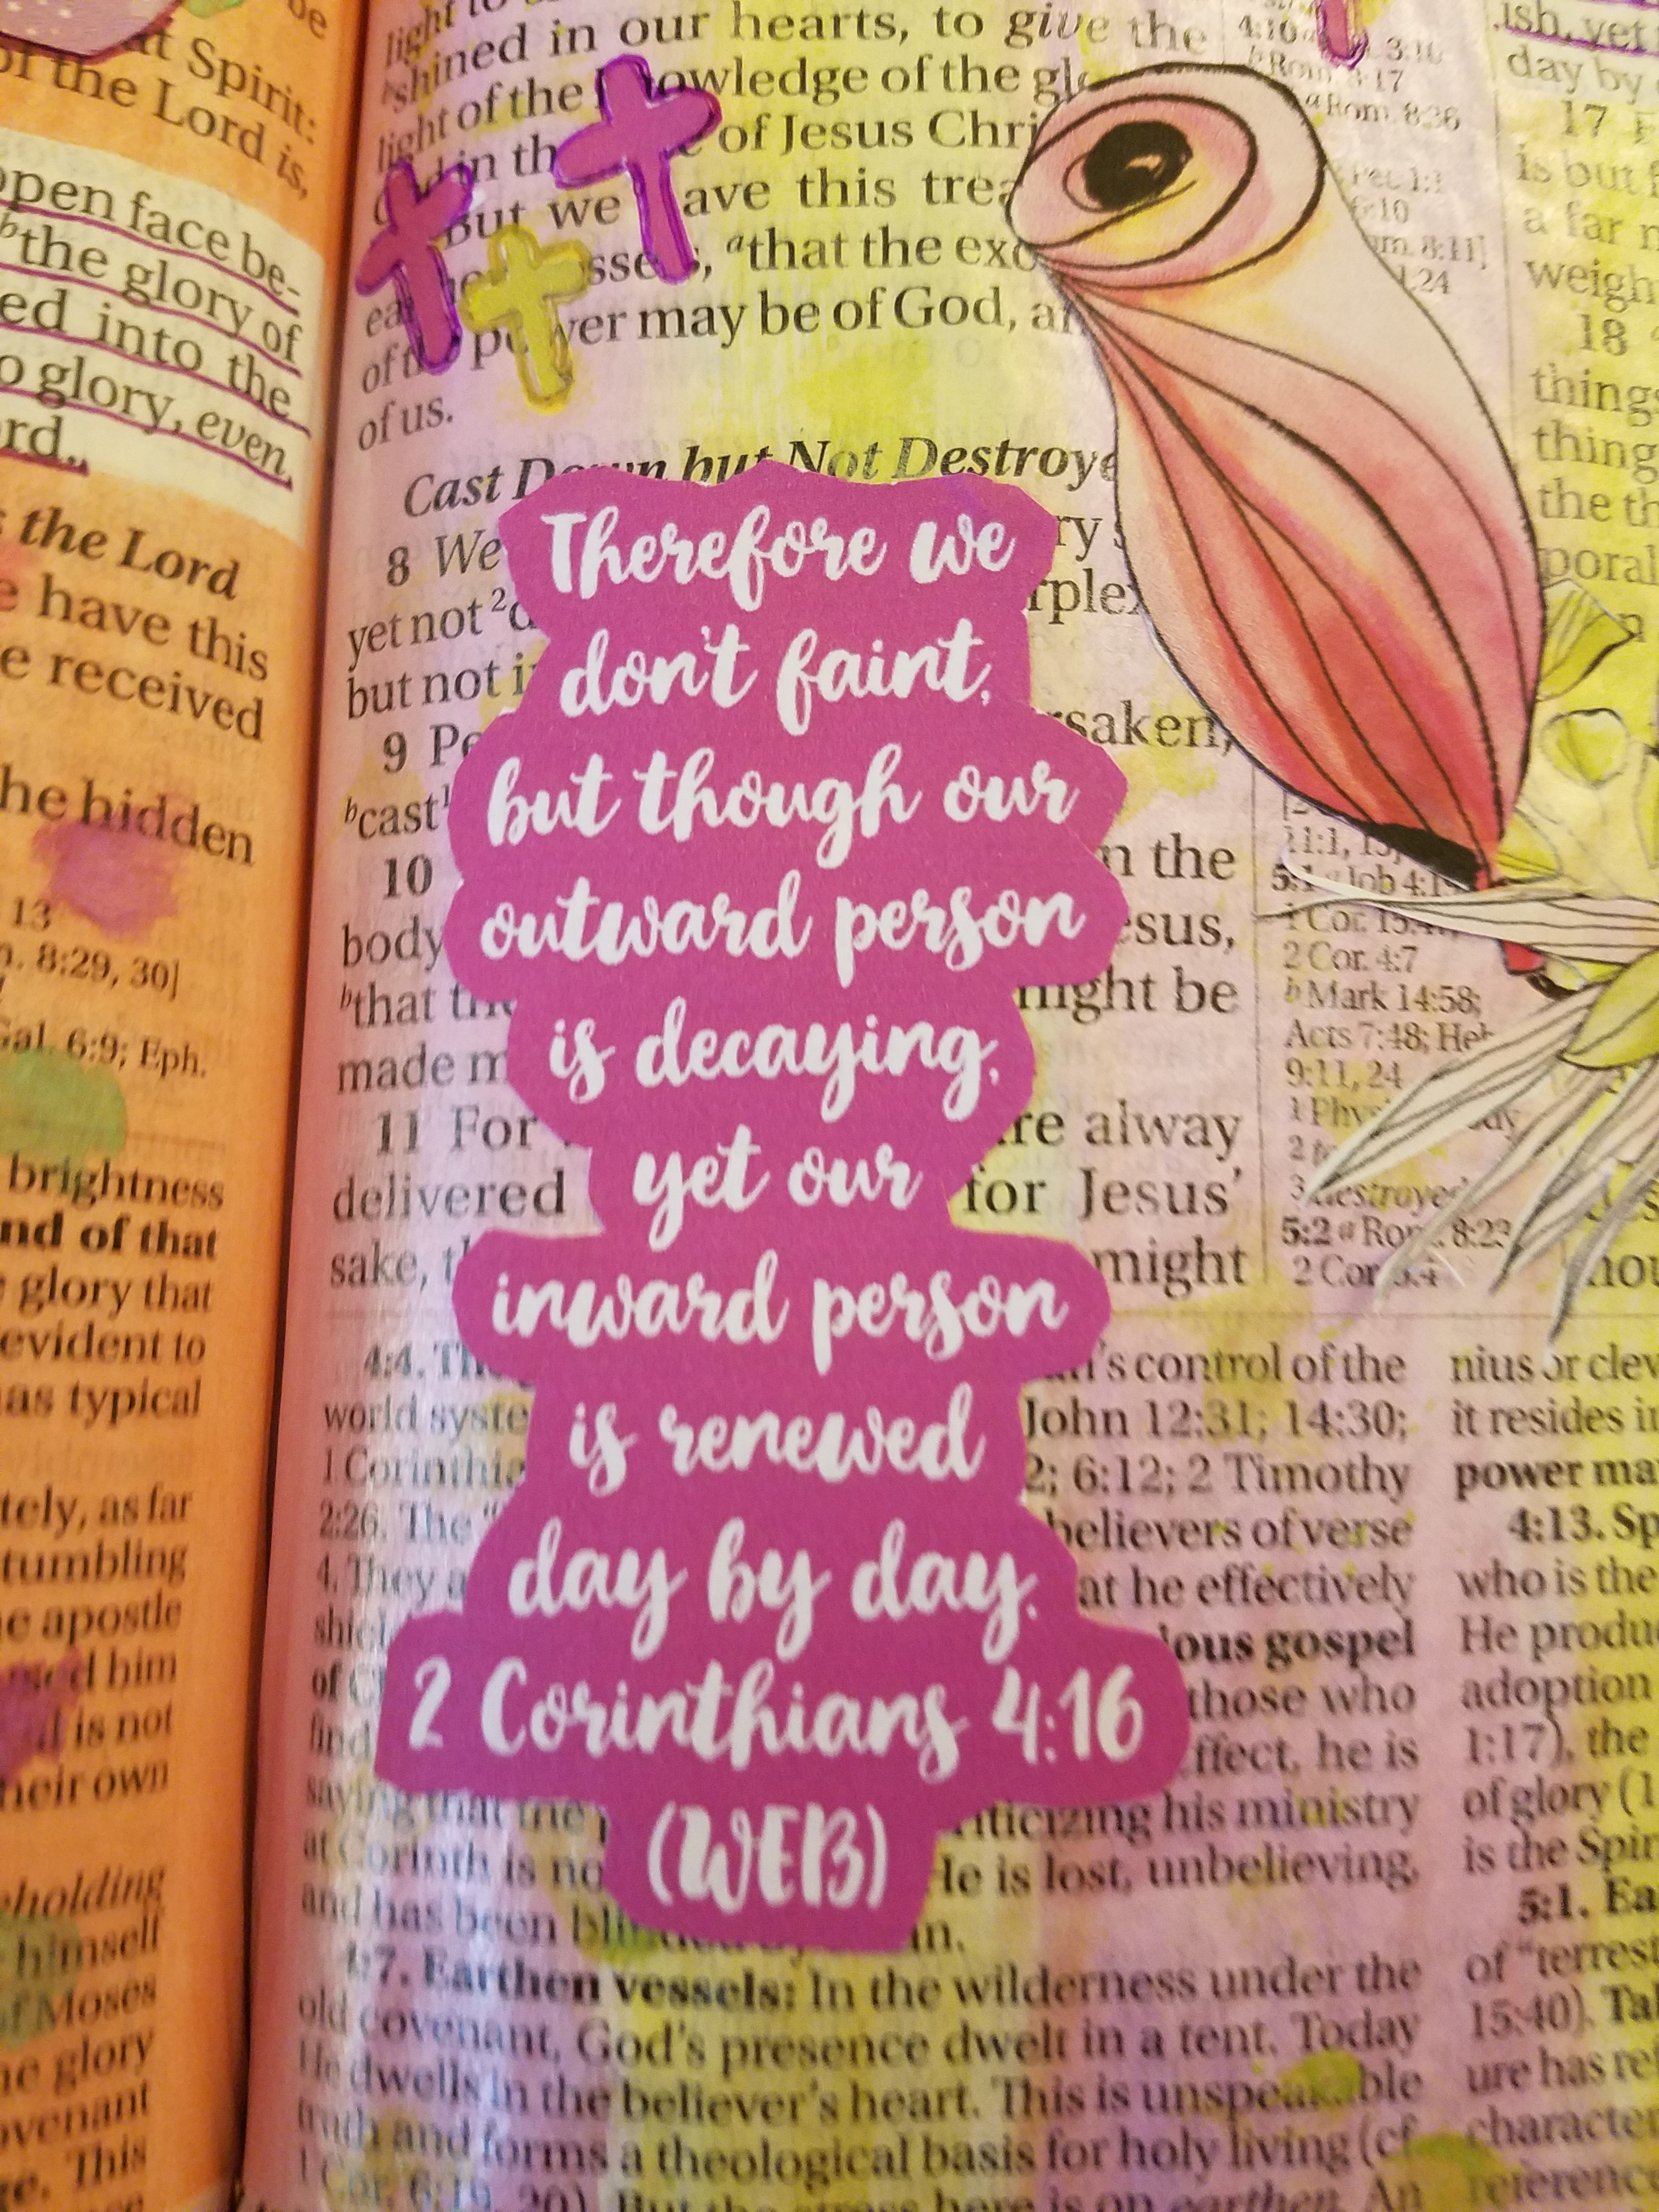 be
at Spirit:
of the Lord is,
open face be-
bthe glory of
ed into the
o glory, even,
ord.,
the Lord
e have this
e received
he hidden
13
8:29, 30]
Gal. 6:9; Eph.
brightness
nd of that
glory that
evident to
as typical
tely, as far
tumbling
e apostle
him
is not
heir own
holding
himself
of Moses
he glory
ovenant
ge. This
light to
bshined in our hearts, to give the
light of the knowledge of the
in th of Jesus Chri
But we ave this trea
, athat the exc
power may be of God, an
of us.
Cast Down but Not Destroye
8 We
yet not 2d rplex
but not i
9 Pe rsaken,
bcast1
10 n the
body esus,
bthat the might be
made m
11 For are alway
delivered for Jesus'
sake, th might
Therefore we
don't faint,
but though our
outward person
is decaying,
yet our
inward person
is renewed
day by day.
2 Corinthians 4:16
(WEB)
4:4. Th 's control of the
world syste John 12:31; 14:30;
1 Corinthia 2; 6:12; 2 Timothy
2:26. The " believers of verse
4. They a at he effectively
ous gospel
of C those who
find ffect, he is
saying that the p iticizing his ministry
at Corinth is no He is lost, unbelieving,
and has been in.
4:7. Earthen vessels: In the wilderness under the
old covenant, God's presence dwelt in a tent. Today
He dwells in the believer's heart. This is unspeakable
truth and forms a theological basis for holy living (cf.
1 Cor. 6:19, 20). But the stress here is on earthen. An
4:10 3:10
bRom. 8:17
aRom. 8:36
6:10
8:11]
1:24
11:1, 13;
5:1 a Job 4:19
1 Cor. 15:47
2 Cor. 4:7
b Mark 14:58;
Acts 7:48; Heb
9:11, 24
3 destroyed
5:2 a Rom. 8:23
2 Cor. 5:4
ish, yet
day by
17 F
is but
a far
weigh
18
things
thing
the th
poral
nius or clev
it resides in
power ma
4:13. Sp
who is the
He produ
adoption
1:17), the
of glory (1
is the Spir
5:1. Ea
of "terrest
15:40). Tal
ure has ref
character
reference